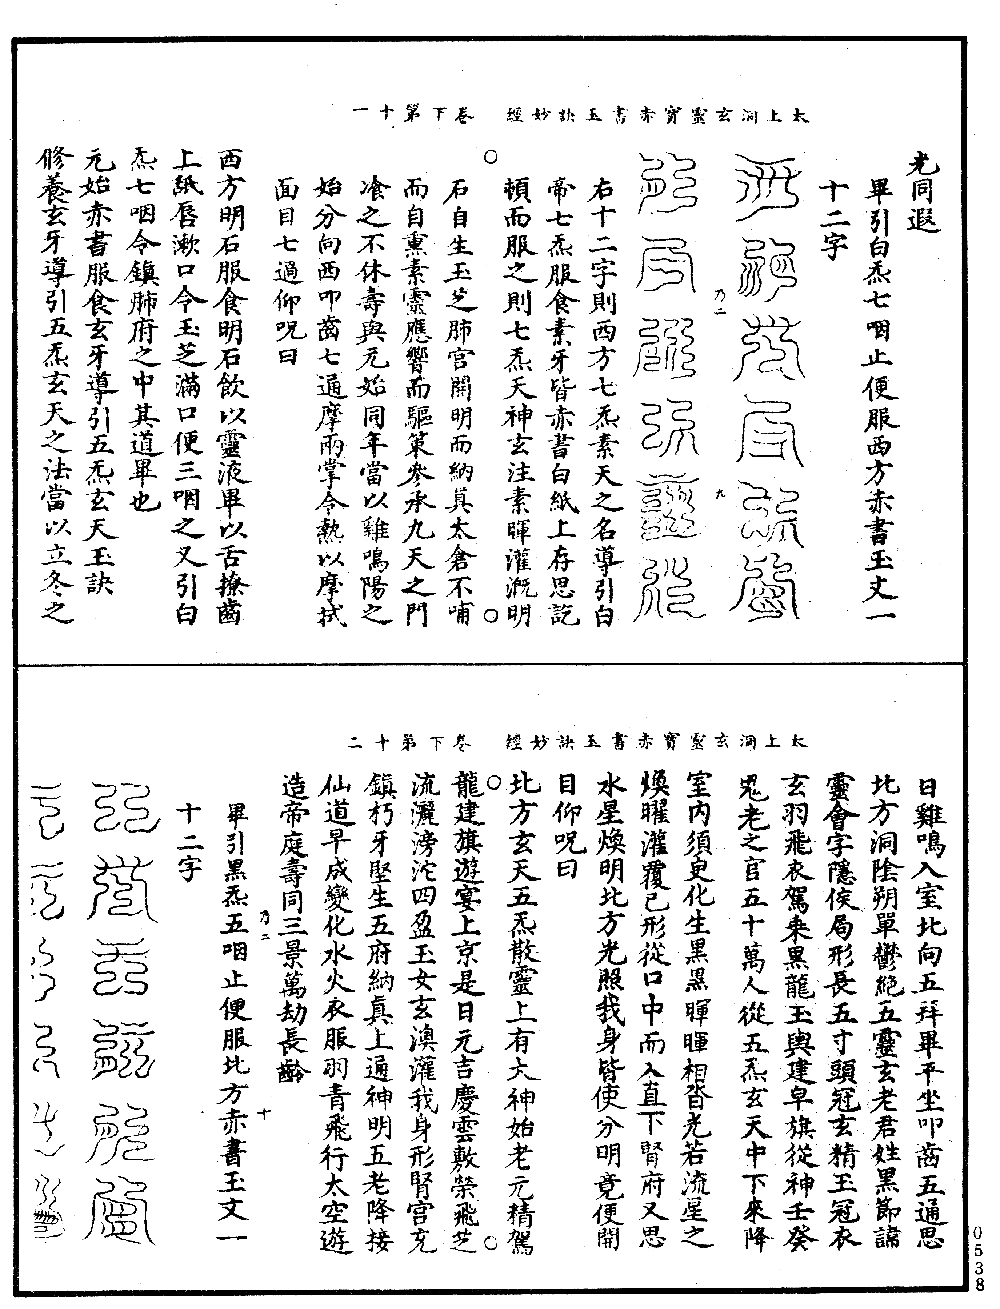 太上洞玄靈寶赤書玉訣妙經　卷下第十一
光同遐
畢引白炁七咽止便服西方赤書玉文一
十二字
乃二
九
右十二字則西方七炁素天之名導引白
帝七炁服食素牙皆赤書白紙上存思訖
頓而服之則七炁天神玄注素暉灌溉明
石自生玉芝肺宮開明而納真太倉不哺
而自熏素靈應響而驅策參承九天之門
飡之不休壽與元始同年當以雞鳴陽之
始分向西叩齒七通摩兩掌令熱以摩拭
面目七過仰呪曰
西方明石服食明石飲以靈液畢以舌撩齒
上紙唇漱口令玉芝滿口便三咽之又引白
炁七咽令鎮肺府之中其道畢也
元始赤書服食玄牙導引五炁玄天玉訣
修養玄牙導引五炁玄天之法當以立冬之
太上洞玄靈寶赤書玉訣妙經　卷下第十二
日雞鳴入室北向五拜畢平坐叩齒五通思
北方洞陰朔單鬱絕五靈玄老君姓黑節諱
靈會字隱侯局形長五寸頭冠玄精玉冠衣
玄羽飛衣駕乘黑龍玉輿建皁旗從神壬癸
鬼老之官五十萬人從五炁玄天中下來降
室內須臾化生黑黑暉暉相沓光若流星之
煥曜灌覆己形從口中而入直下腎府又思
水星煥明北方光照我身皆使分明竟便開
目仰呪曰
北方玄天五炁散靈上有大神始老元精駕
龍建旗遊宴上京是日元吉慶雲敷榮飛芝
流灑滂沱四盈玉女玄澳灌我身形腎宮充
鎮朽牙堅生五府納真上通神明五老降接
仙道早成變化水火衣服羽青飛行太空遊
造帝庭壽同三景萬劫長齡
乃二
十
畢引黑炁五咽止便服北方赤書玉文一
十二字
0538